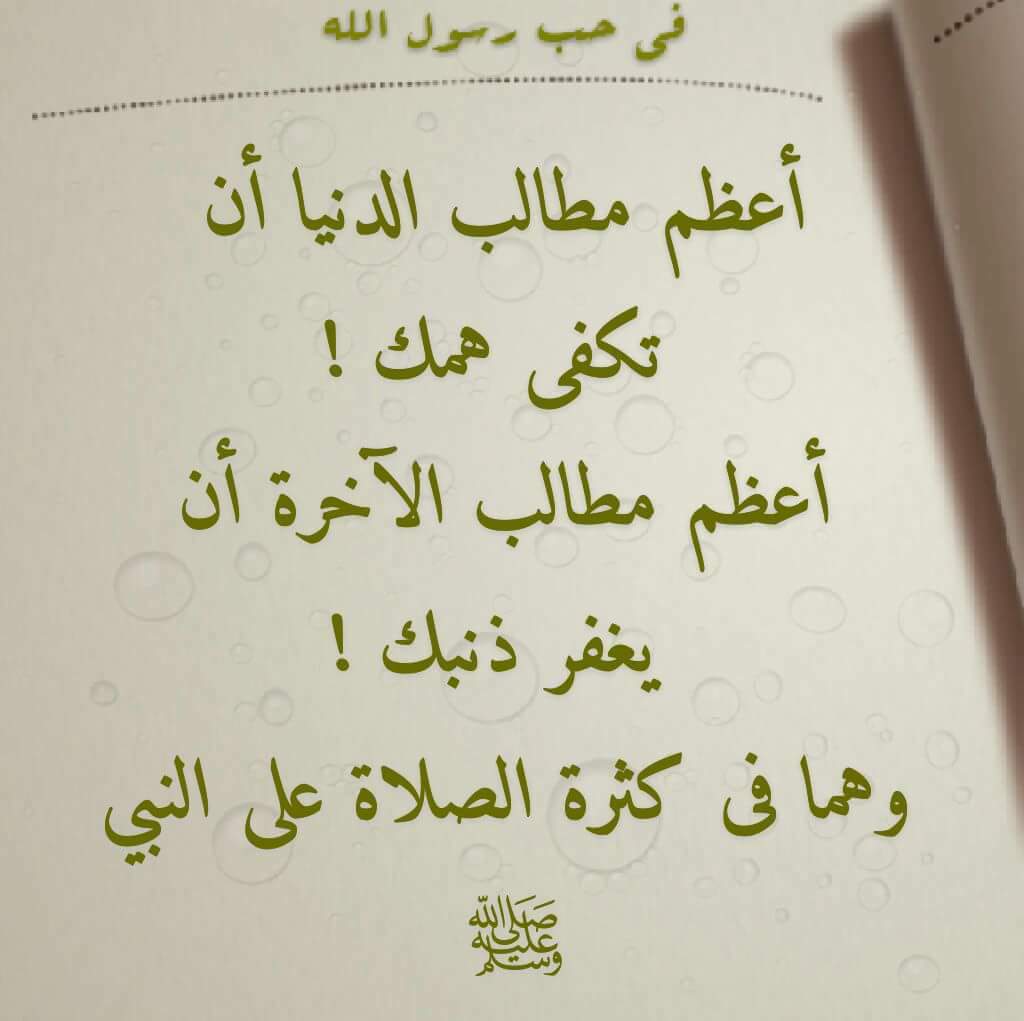 فى حب رسول الله
أعظم مطالب الدنيا أن
تكفى همك !
أعظم مطالب الآخرة أن
يغفر ذنبك !
وهما فى كثرة الصلاة على النبي
ﷺ